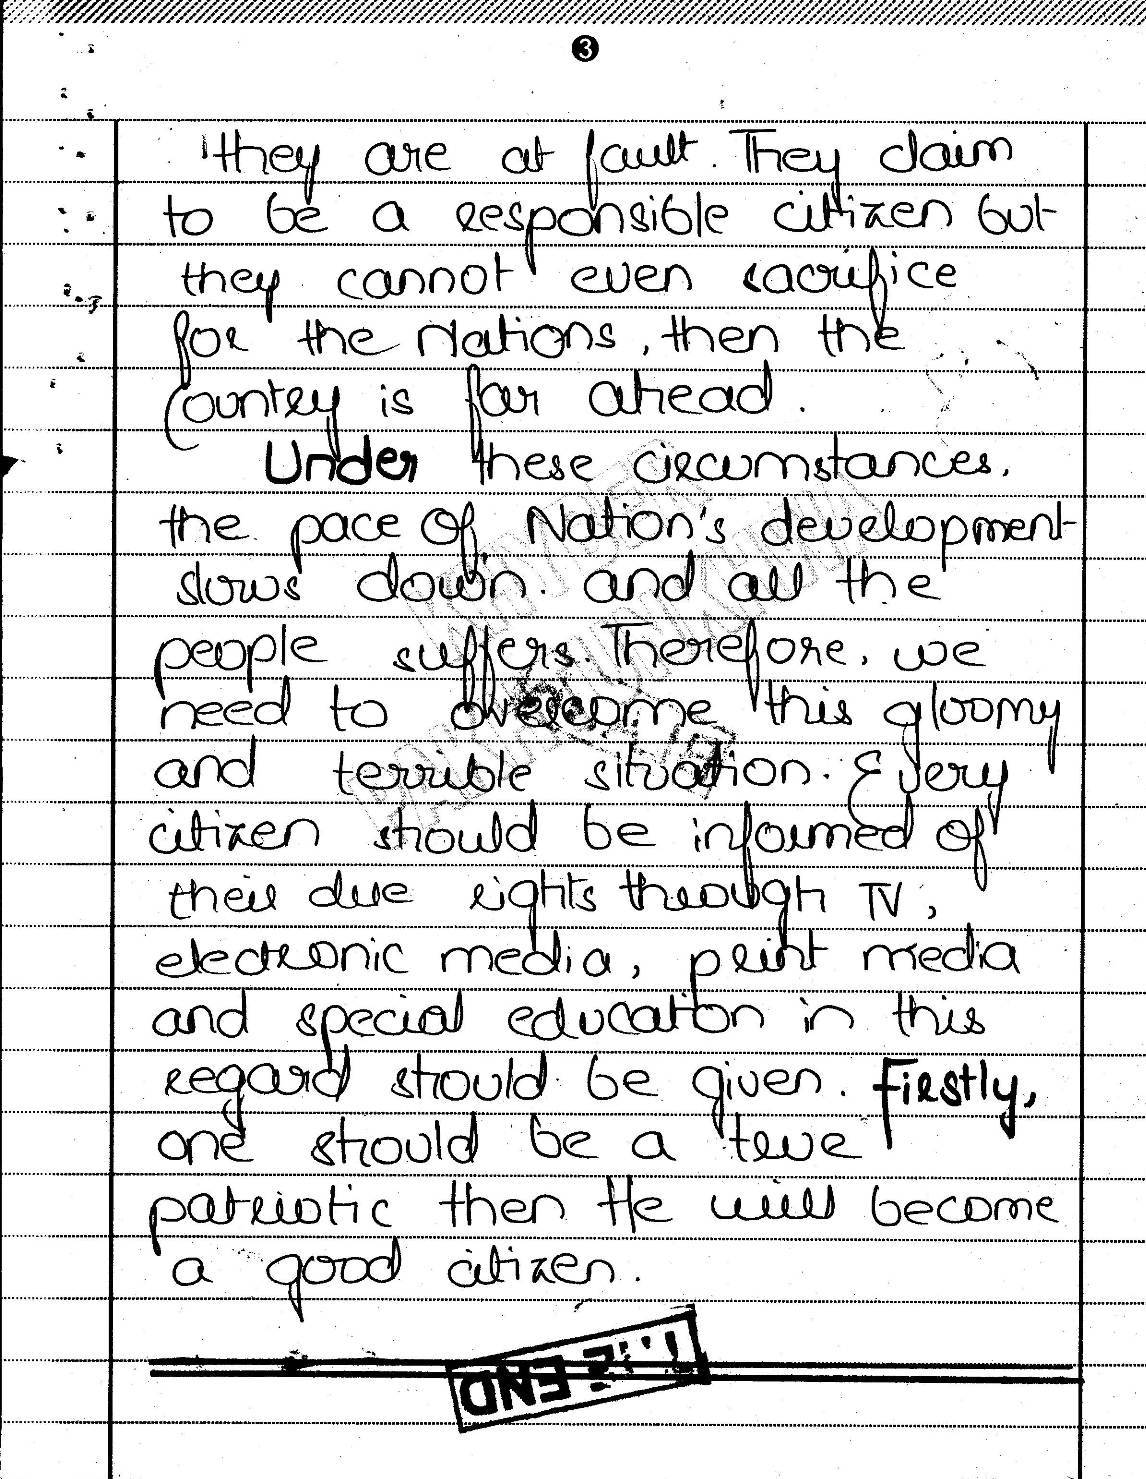 3
they are at fault. They claim
to be a responsible citizen but
they cannot even sacrifice
for the Nations, then the
Country is far ahead.
Under these circumstances,
the pace of Nation's development
slows down. and all the
people suffers. Therefore, we
need to overcome this gloomy
and terrible situation. Every
citizen should be informed of
their due rights through TV,
electronic media, print media
and special education in this
regard should be given. Firstly,
one should be a true
patriotic then He will become
a good citizen.
THE END